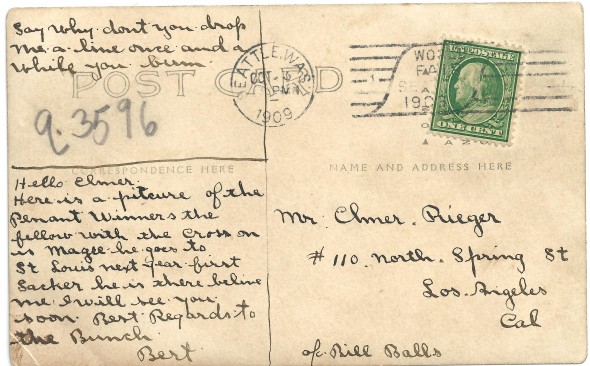 Say Why dont you drop
me a line once and a
while you bum.
POST CARD
SEATTLE, WASH.
OCT
PM
1909
WO
FA
U.S. POSTAGE
ONE CENT
q.3596
CORRESPONDENCE HERE
Hello Elmer.
Here is a pitcure of the
Penant Winners the
fellow with the Cross on
is Magee he goes to
St Louis next year first
Sacker he is there belive
me I will see you
soon Best Regards to
the Bunch
Bert
NAME AND ADDRESS HERE
Mr. Elmer Rieger
# 110 North Spring St
Los Angeles
Cal
c/o Bill Balls